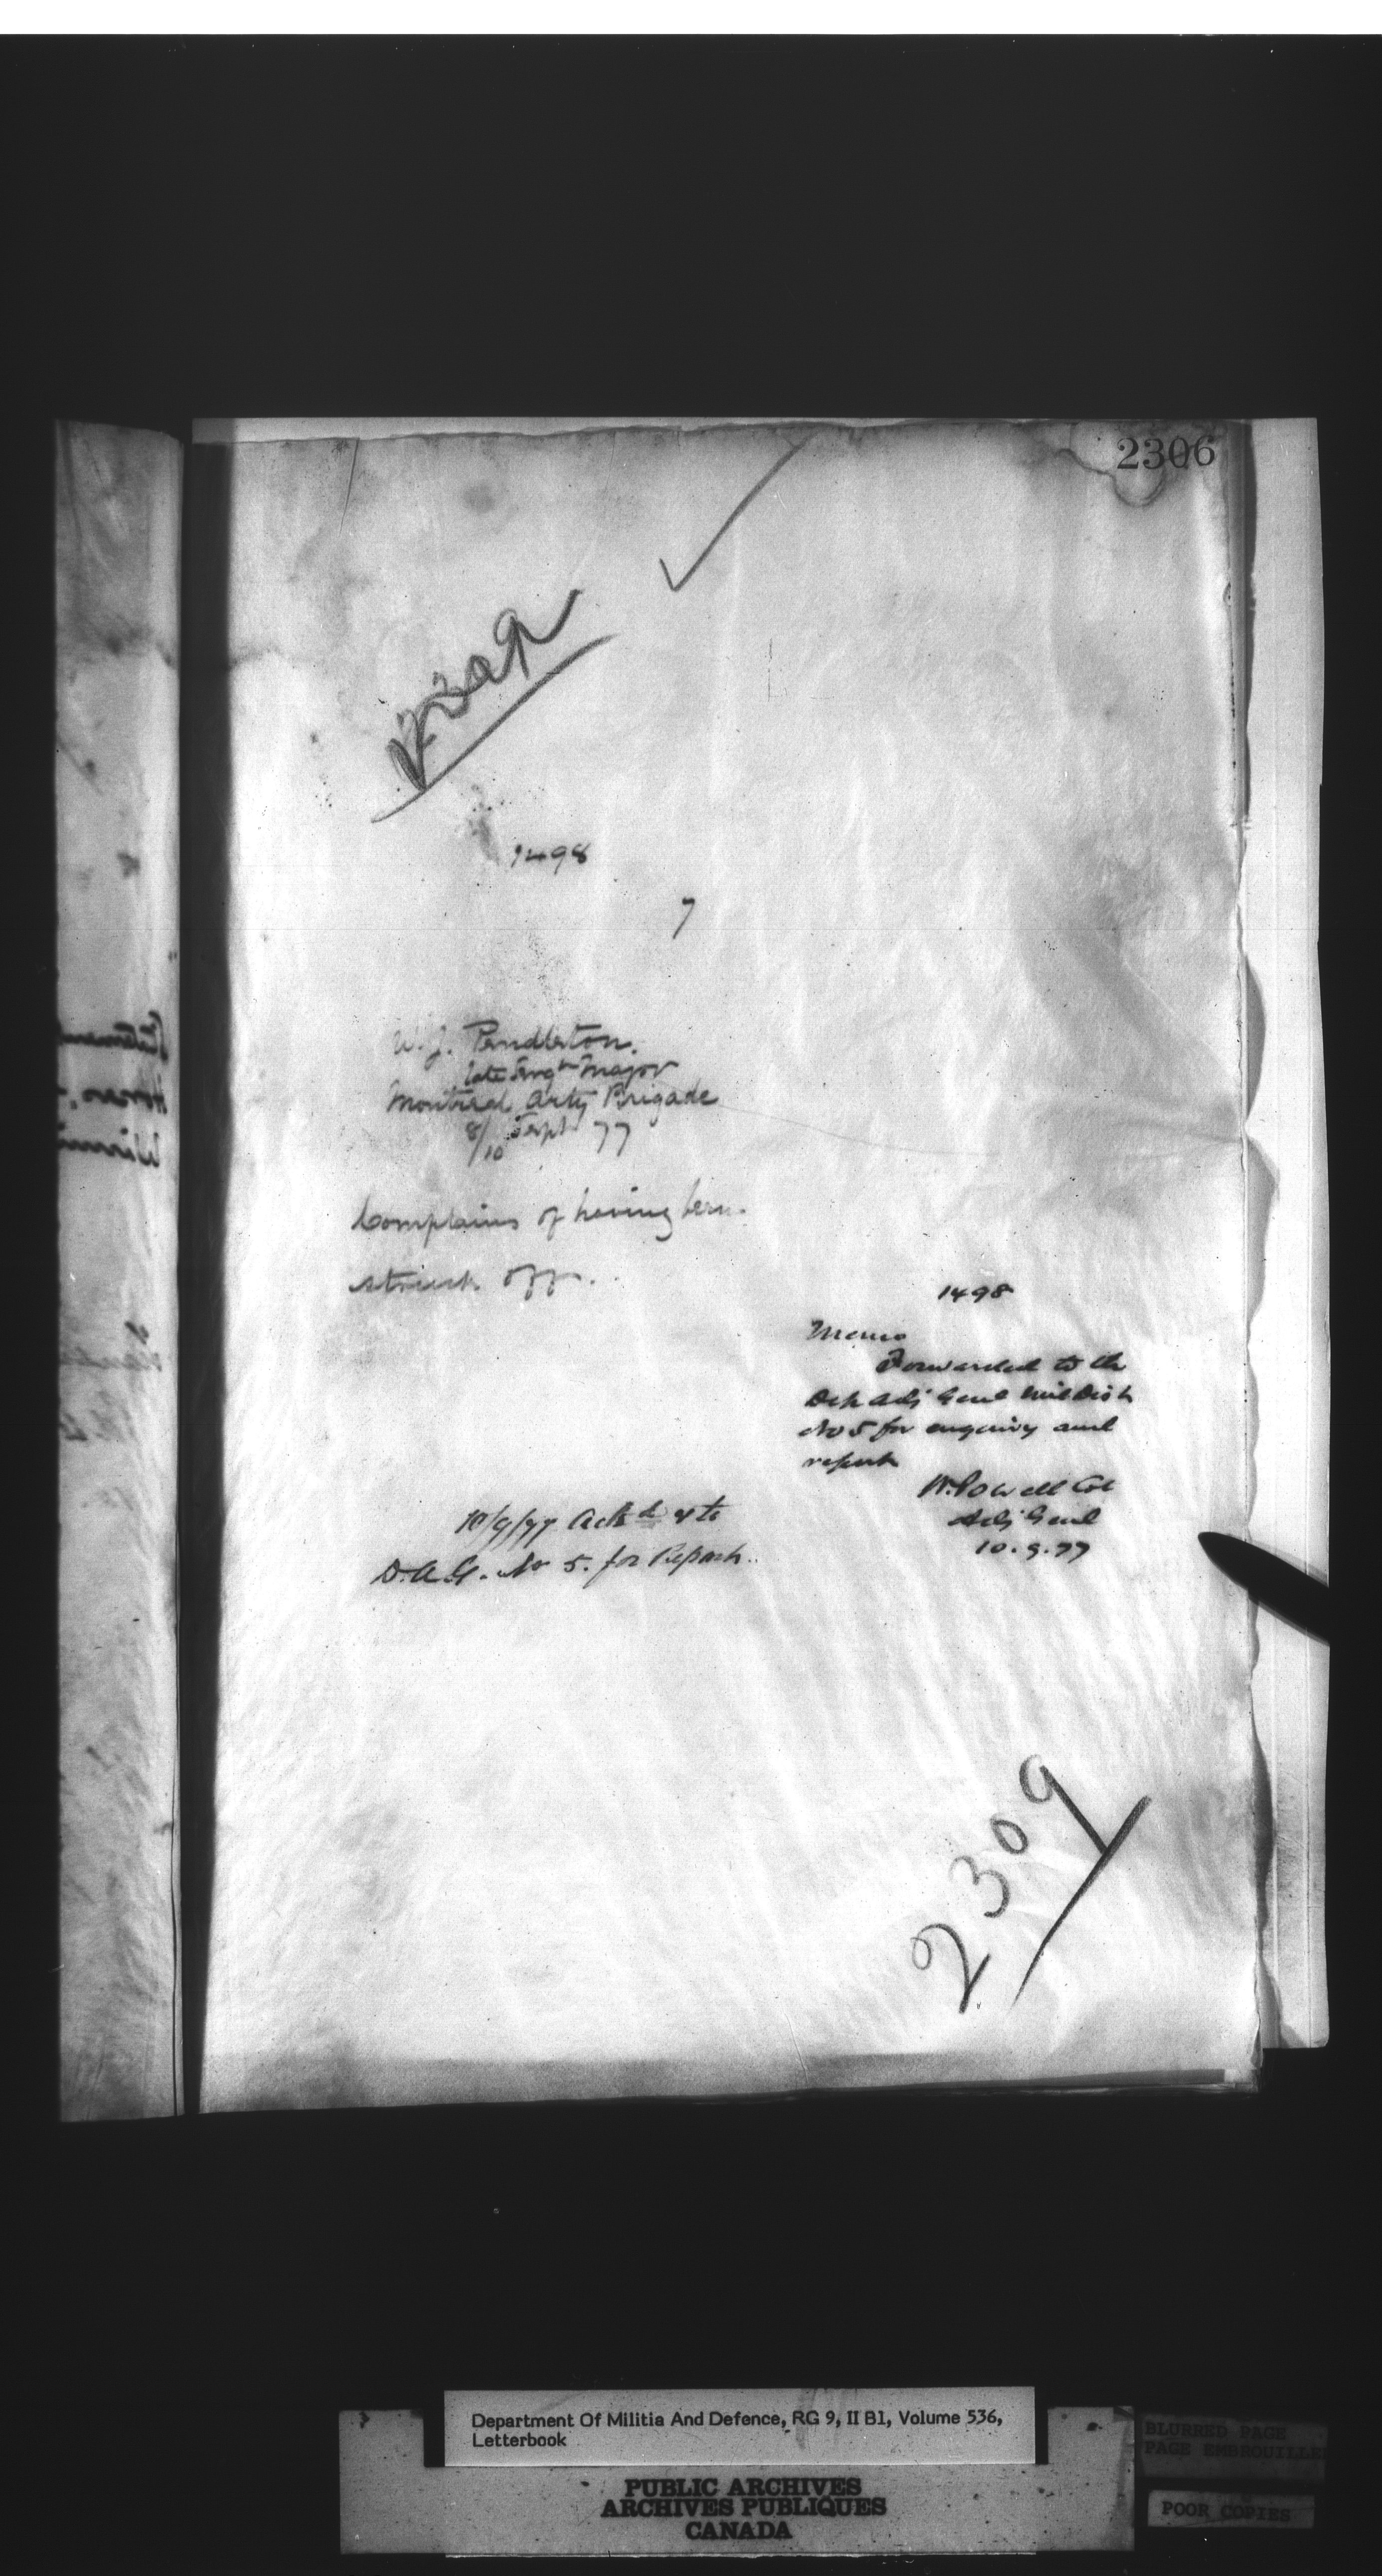 2306
2309
1498
7
W. J. Pendleton.
late Sergt Major
Montreal Arty Brigade
8/10 Sept 77
Complains of having been
struck off.
1498
Memo
Forwarded to the
Dep Adj Genl Mil Dist
No 5 for enquiry and
report
W. Powell Col
Adj Genl
10.9.77
10/9/77 Ackd & to
D.A.G. No 5. for Report.
2309
Department Of Militia And Defence, RG 9, II B1, Volume 536,
Letterbook
PUBLIC ARCHIVES
ARCHIVES PUBLIQUES
CANADA
BLURRED PAGE
PAGE EMBROUILLEE
POOR COPIES